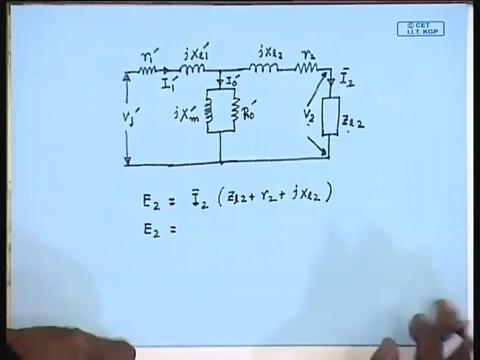 © CET
I.I.T. KGP
r₁′ jxₗ₁′ jxₗ₂ r₂
I₁′ I₀′ Ī₂
V₁′ jXₘ′ R₀′ V₂ Zₗ₂
E₂ = Ī₂ (Zₗ₂ + r₂ + jxₗ₂)
E₂ =